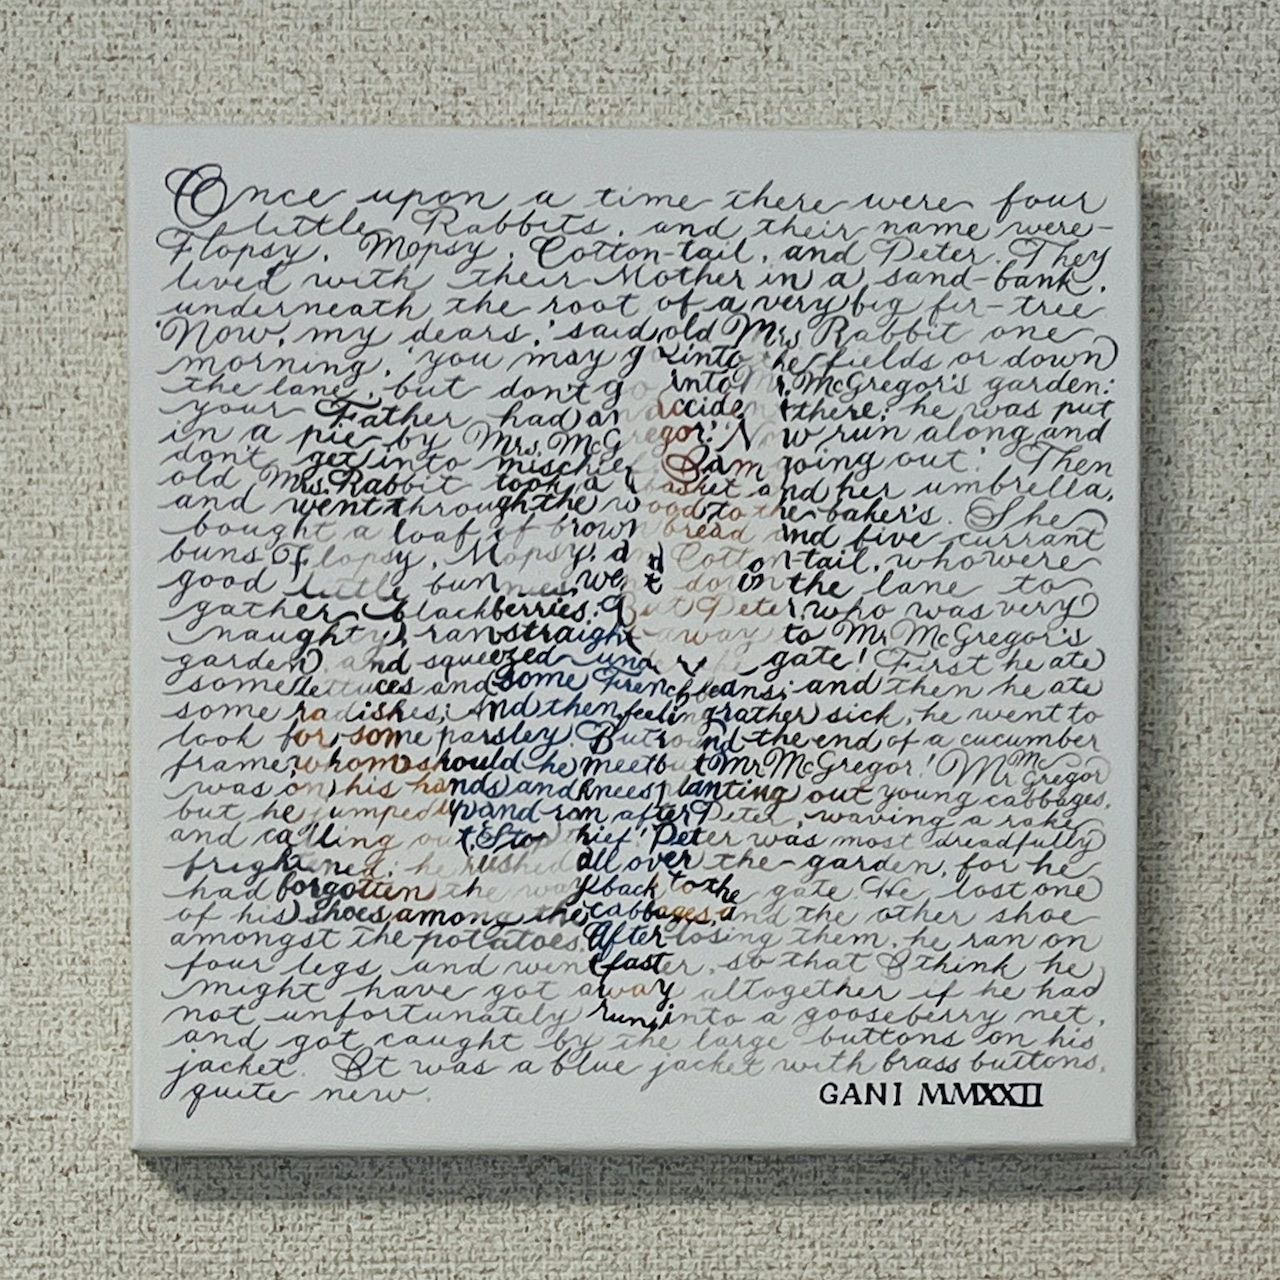 Once upon a time there were four
little Rabbits, and their name were-
Flopsy, Mopsy, Cotton-tail, and Peter. They
lived with their Mother in a sand-bank,
underneath the root of a very big fir-tree
'Now, my dears,' said old Mrs Rabbit one
morning, 'you may go into the fields or down
the lane, but don't go into Mr. McGregor's garden:
your Father had an accident there; he was put
in a pie by Mrs. McGregor.' 'Now run along and
don't get into mischief. I am going out.' Then
old Mrs. Rabbit took a basket and her umbrella,
and went through the wood to the baker's. She
bought a loaf of brown bread and five currant
buns Flopsy, Mopsy, and Cotton-tail, who were
good little bunnies, went down the lane to
gather blackberries. But Peter, who was very
naughty, ran straight away to Mr McGregor's
garden, and squeezed under the gate! First he ate
some lettuces and some French beans; and then he ate
some radishes; And then, feeling rather sick, he went to
look for some parsley. But round the end of a cucumber
frame, whom should he meet but Mr McGregor! Mr McGregor
was on his hands and knees planting out young cabbages,
but he jumped up and ran after Peter, waving a rake
and calling out, 'Stop thief!' Peter was most dreadfully
frightened; he rushed all over the garden, for he
had forgotten the way back to the gate. He lost one
of his shoes among the cabbages, and the other shoe
amongst the potatoes. After losing them, he ran on
four legs, and went faster, so that I think he
might have got away altogether if he had
not unfortunately run into a gooseberry net,
and got caught by the large buttons on his
jacket. It was a blue jacket with brass buttons,
quite new.
GANI MMXXII